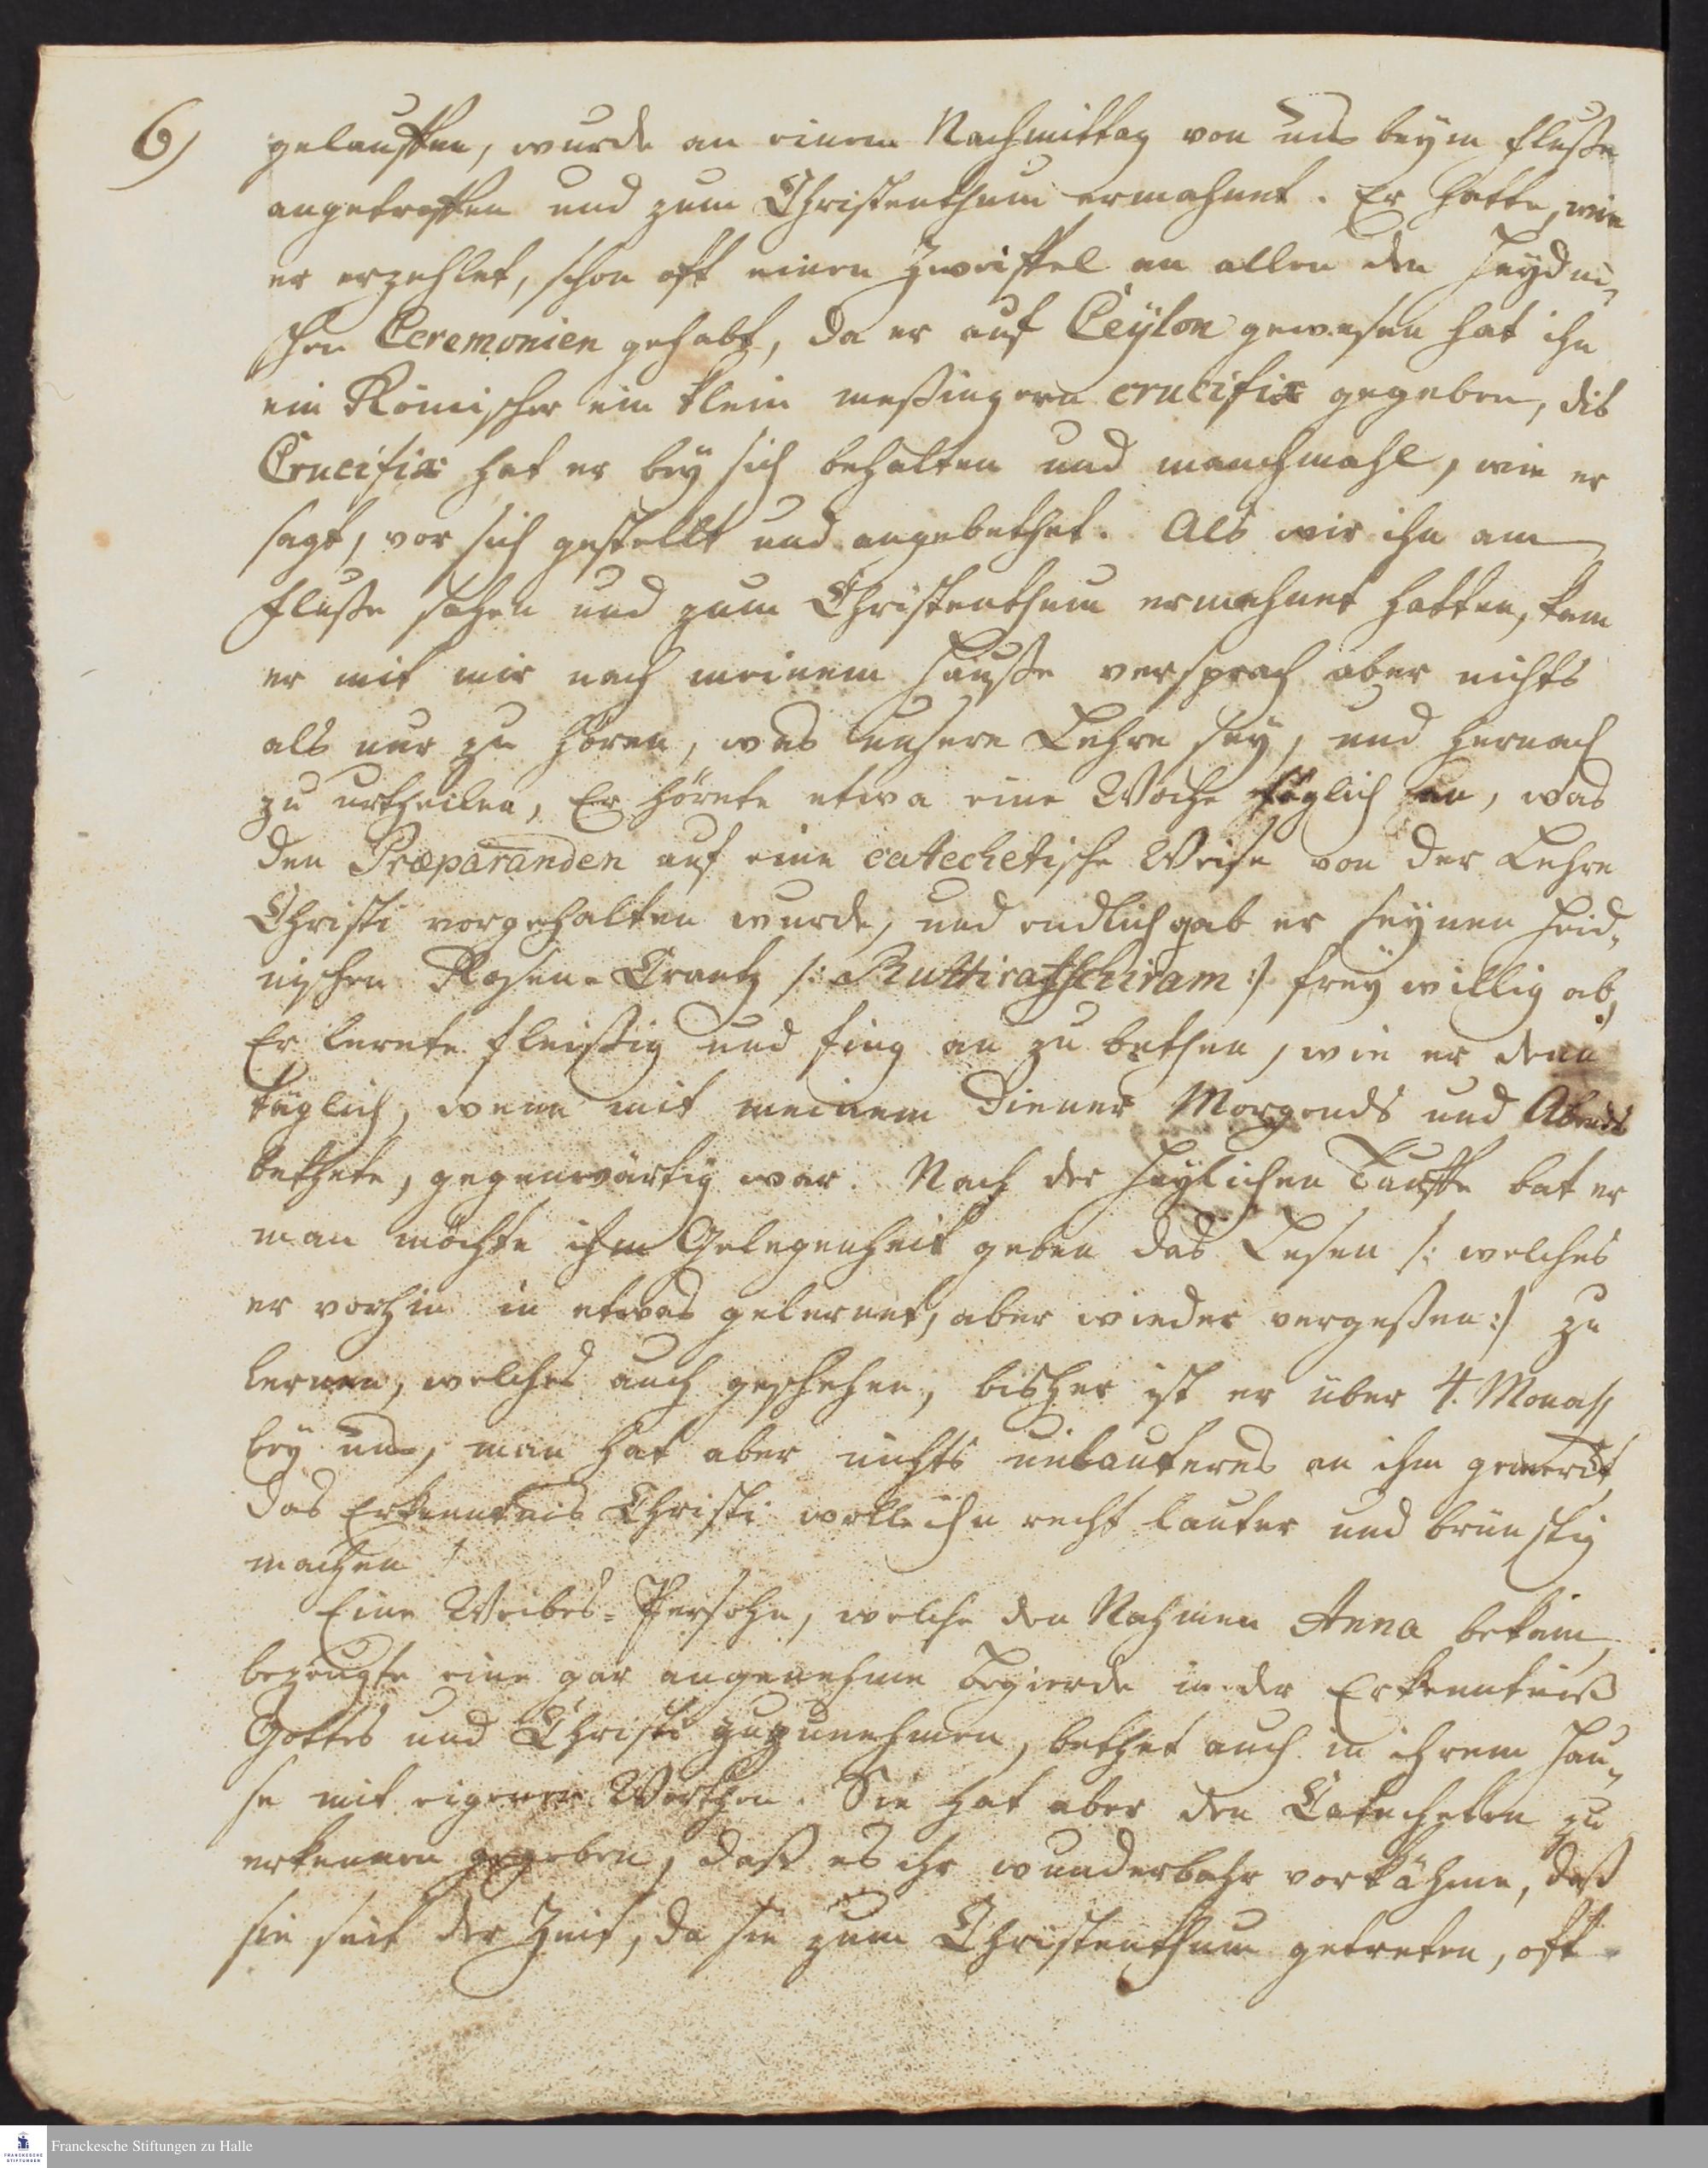 6)
gelauffen, wurde an einem Nachmittag von uns beym Fluße
angetroffen und zum Christenthum ermahnet. Er hatte, wie
er erzehlet, schon oft einen Zweiffel an allen den Heydni-
schen Ceremonien gehabt, da er auf Ceÿlon gewesen hat ihn
ein Römischer ein klein meßingern crucifix gegeben, dis
Crucifix hat er beÿ sich behalten und manchmahl, wie er
sagt, vor sich gestellt und angebethet. Als wir ihn am
Fluße sahen und zum Christenthum ermahnet hatten, kam
er mit mir nach meinem Hauße versprach aber nichts
als nur zu hören, was unsere Lehre seÿ, und hernach
zu urtheilen, Er hörete etwa eine Woche täglich an, was
den Præparanden auf eine catechetische Weise von der Lehre
Christi vorgehalten wurde, und endlich gab er seynen Heid-
nischen Rosen-Crantz /: Ruttiratschiram :/ freÿ willig ab,
Er lernete fleißig und fing an zu bethen, wie er denn
täglich, wenn mit meinem Diener Morgends und Abends
bethete, gegenwärtig war. Nach der Heylichen Tauffe bat er
man möchte ihm Gelegenheit geben das Lesen /: welches
er vorhin in etwas gelernet, aber wieder vergeßen :/ zu
lernen, welches auch geschehen, bisher ist er über 4. Monath
beÿ uns, man hat aber nichts unlauteres an ihm gemerckt,
Das Erkenntnis Christi wolle ihn recht lauter und brünstig
machen!
Eine Weibes-Persohn, welche den Nahmen Anna bekam,
bezeugte eine gar angenehme Begierde in der Erkenntniß
Gottes und Christi zuzunehmen, bethet auch in ihrem Hau-
se mit eigenen Worthen. Sie hat aber den Catecheten zu
erkennen gegeben, daß es ihr wunderbahr vorkähme, daß
sie seit der Zeit, da sie zum Christenthum getreten, oft
Franckesche Stiftungen zu Halle
FRANCKESCHE
STIFTUNGEN